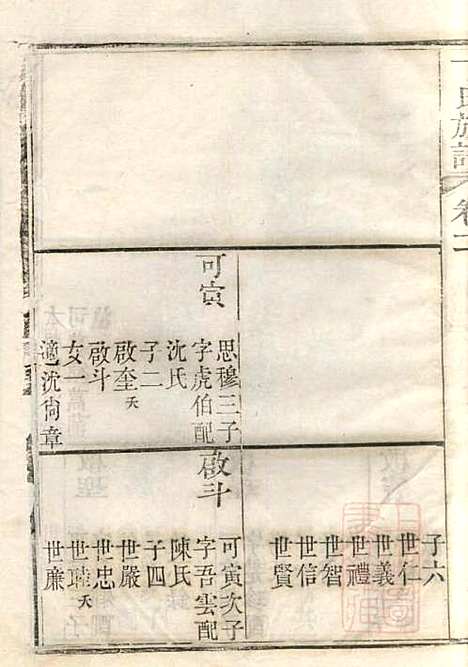 氏族譜 卷二
可寅
思穆三子
字虎伯配
沈氏
子二
啟奎夭
啟斗
女一
適沈尚章
子六
世仁
世義
世禮
世智
世信
世賢
啟斗
可寅次子
字吾雲配
陳氏
子四
世嚴
世忠
世瑋夭
世廉